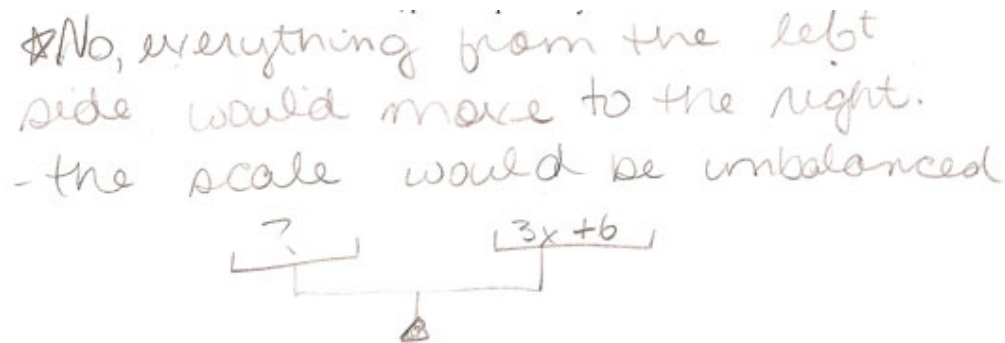 *No, everything from the left
side would move to the right.
- the scale would be unbalanced
? 3x +6